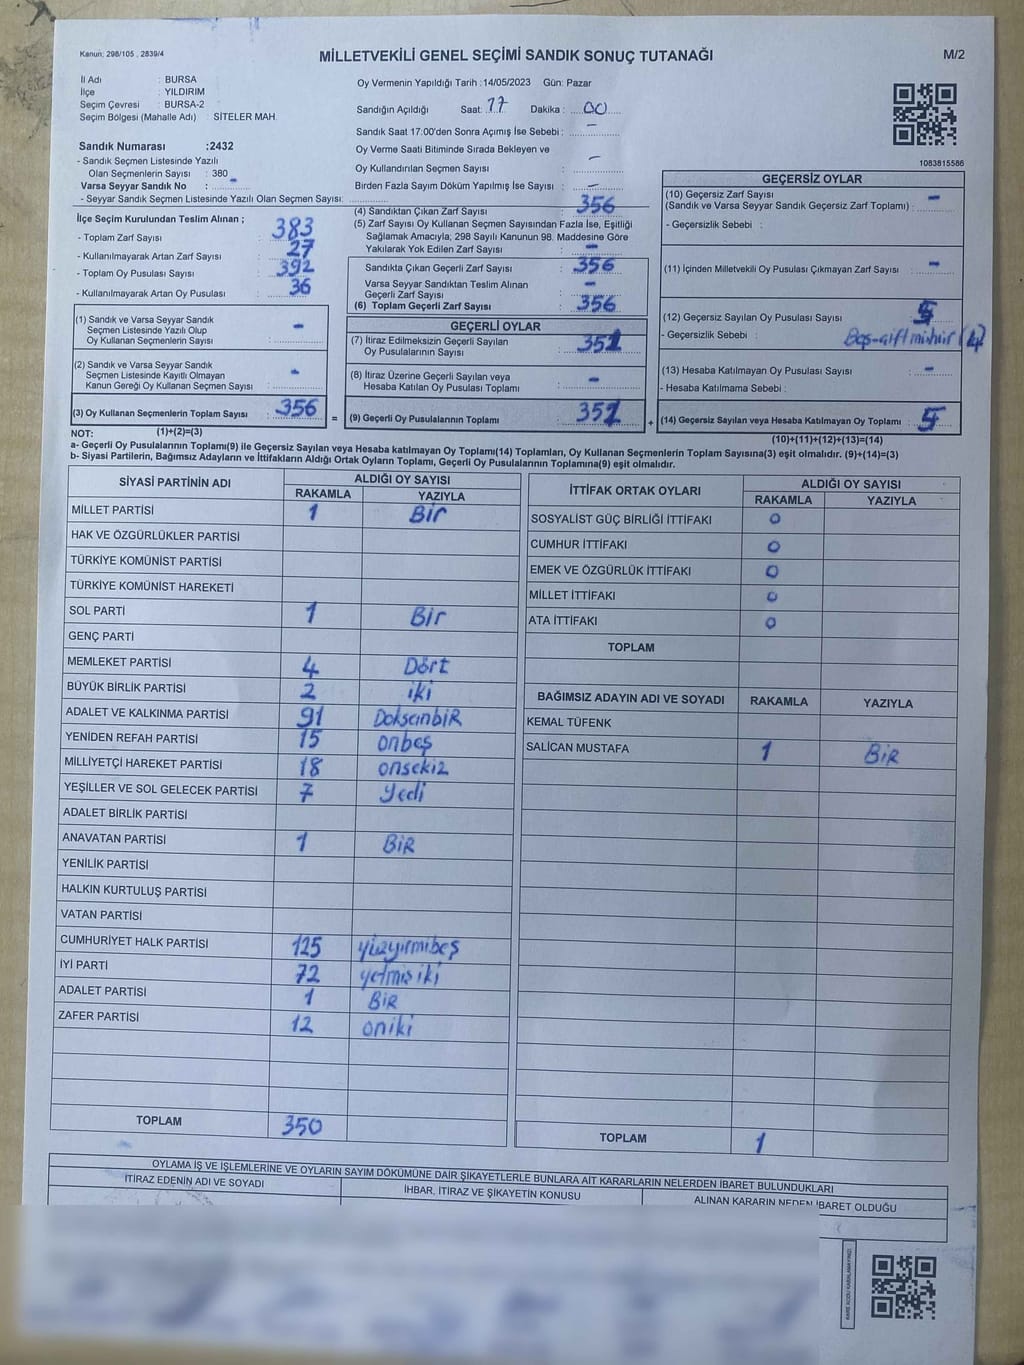 Kanun: 298/105 , 2839/4
MİLLETVEKİLİ GENEL SEÇİMİ SANDIK SONUÇ TUTANAĞI
M/2
İl Adı : BURSA
İlçe : YILDIRIM
Seçim Çevresi : BURSA-2
Seçim Bölgesi (Mahalle Adı) : SİTELER MAH.
Sandık Numarası :2432
- Sandık Seçmen Listesinde Yazılı
Olan Seçmenlerin Sayısı : 380
Varsa Seyyar Sandık No : -
- Seyyar Sandık Seçmen Listesinde Yazılı Olan Seçmen Sayısı:
İlçe Seçim Kurulundan Teslim Alınan ;
- Toplam Zarf Sayısı : 383
- Kullanılmayarak Artan Zarf Sayısı : 27
- Toplam Oy Pusulası Sayısı : 392
- Kullanılmayarak Artan Oy Pusulası : 36
(1) Sandık ve Varsa Seyyar Sandık
Seçmen Listesinde Yazılı Olup
Oy Kullanan Seçmenlerin Sayısı : -
(2) Sandık ve Varsa Seyyar Sandık
Seçmen Listesinde Kayıtlı Olmayan
Kanun Gereği Oy Kullanan Seçmen Sayısı : -
(3) Oy Kullanan Seçmenlerin Toplam Sayısı : 356
(1)+(2)=(3)
Oy Vermenin Yapıldığı Tarih :14/05/2023 Gün: Pazar
Sandığın Açıldığı Saat: 17 Dakika : 00
Sandık Saat 17:00'den Sonra Açımış İse Sebebi : -
Oy Verme Saati Bitiminde Sırada Bekleyen ve
Oy Kullandırılan Seçmen Sayısı : -
Birden Fazla Sayım Döküm Yapılmış İse Sayısı : -
(4) Sandıktan Çıkan Zarf Sayısı : 356
(5) Zarf Sayısı Oy Kullanan Seçmen Sayısından Fazla İse, Eşitliği
Sağlamak Amacıyla, 298 Sayılı Kanunun 98. Maddesine Göre
Yakılarak Yok Edilen Zarf Sayısı : -
Sandıkta Çıkan Geçerli Zarf Sayısı : 356
Varsa Seyyar Sandıktan Teslim Alınan
Geçerli Zarf Sayısı : -
(6) Toplam Geçerli Zarf Sayısı : 356
GEÇERLİ OYLAR
(7) İtiraz Edilmeksizin Geçerli Sayılan
Oy Pusulalarının Sayısı :
(8) İtiraz Üzerine Geçerli Sayılan veya
Hesaba Katılan Oy Pusulası Toplamı : -
= (9) Geçerli Oy Pusulalarının Toplamı :
1083815586
GEÇERSİZ OYLAR
(10) Geçersiz Zarf Sayısı
(Sandık ve Varsa Seyyar Sandık Geçersiz Zarf Toplamı) : -
- Geçersizlik Sebebi :
(11) İçinden Milletvekili Oy Pusulası Çıkmayan Zarf Sayısı : -
(12) Geçersiz Sayılan Oy Pusulası Sayısı : 5
- Geçersizlik Sebebi : Boş-çift mühür (4)
(13) Hesaba Katılmayan Oy Pusulası Sayısı : -
- Hesaba Katılmama Sebebi :
+ (14) Geçersiz Sayılan veya Hesaba Katılmayan Oy Toplamı : 5
(10)+(11)+(12)+(13)=(14)
NOT:
a- Geçerli Oy Pusulalarının Toplamı(9) ile Geçersiz Sayılan veya Hesaba katılmayan Oy Toplamı(14) Toplamları, Oy Kullanan Seçmenlerin Toplam Sayısına(3) eşit olmalıdır. (9)+(14)=(3)
b- Siyasi Partilerin, Bağımsız Adayların ve İttifakların Aldığı Ortak Oyların Toplamı, Geçerli Oy Pusulalarının Toplamına(9) eşit olmalıdır.
SİYASİ PARTİNİN ADI ALDIĞI OY SAYISI
RAKAMLA YAZIYLA
MİLLET PARTİSİ 1 Bir
HAK VE ÖZGÜRLÜKLER PARTİSİ
TÜRKİYE KOMÜNİST PARTİSİ
TÜRKİYE KOMÜNİST HAREKETİ
SOL PARTİ 1 Bir
GENÇ PARTİ
MEMLEKET PARTİSİ 4 Dört
BÜYÜK BİRLİK PARTİSİ 2 iki
ADALET VE KALKINMA PARTİSİ 91 DoksanbiR
YENİDEN REFAH PARTİSİ 15 onbeş
MİLLİYETÇİ HAREKET PARTİSİ 18 onsekiz
YEŞİLLER VE SOL GELECEK PARTİSİ 7 yedi
ADALET BİRLİK PARTİSİ
ANAVATAN PARTİSİ 1 BiR
YENİLİK PARTİSİ
HALKIN KURTULUŞ PARTİSİ
VATAN PARTİSİ
CUMHURİYET HALK PARTİSİ 125 yüzyirmibeş
İYİ PARTİ 72 yetmişiki
ADALET PARTİSİ 1 BiR
ZAFER PARTİSİ 12 oniki
TOPLAM 350
İTTİFAK ORTAK OYLARI ALDIĞI OY SAYISI
RAKAMLA YAZIYLA
SOSYALİST GÜÇ BİRLİĞİ İTTİFAKI 0
CUMHUR İTTİFAKI 0
EMEK VE ÖZGÜRLÜK İTTİFAKI 0
MİLLET İTTİFAKI 0
ATA İTTİFAKI 0
TOPLAM
BAĞIMSIZ ADAYIN ADI VE SOYADI RAKAMLA YAZIYLA
KEMAL TÜFENK
SALİCAN MUSTAFA 1 BiR
TOPLAM 1
OYLAMA İŞ VE İŞLEMLERİNE VE OYLARIN SAYIM DÖKÜMÜNE DAİR ŞİKAYETLERLE BUNLARA AİT KARARLARIN NELERDEN İBARET BULUNDUKLARI
İTİRAZ EDENİN ADI VE SOYADI İHBAR, İTİRAZ VE ŞİKAYETİN KONUSU ALINAN KARARIN NEDEN İBARET OLDUĞU
KARE KODU KARALAMAYINIZ!